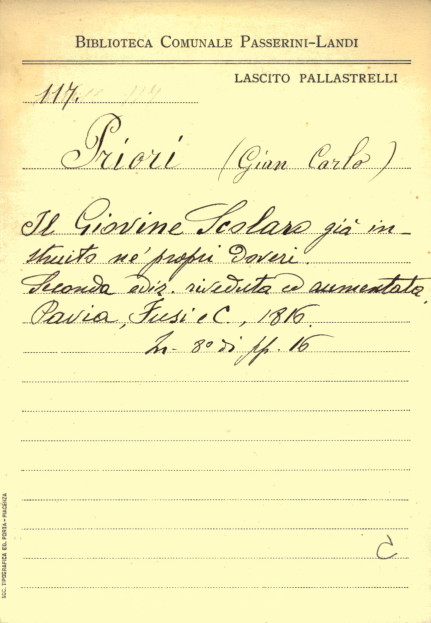 BIBLIOTECA COMUNALE PASSERINI-LANDI
LASCITO PALLASTRELLI
117.
Priori (Gian Carlo)
Il Giovine Scolaro già in-
struito ne' propri doveri.
Seconda ediz. riveduta ed aumentata.
Pavia, Fusi e C., 1816.
In- 8° di pp. 16
C
SOC. TIPOGRAFICA ED. PORTA-PIACENZA